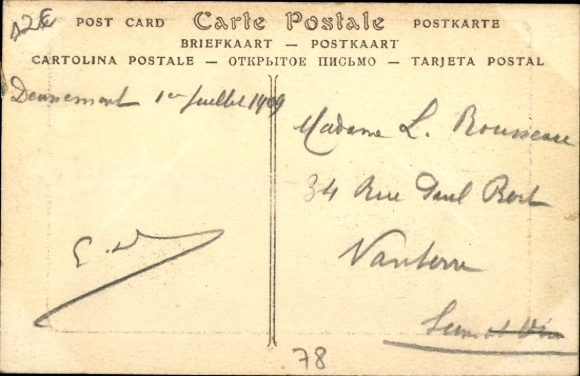 12€
POST CARD Carte Postale POSTKARTE
BRIEFKAART — POSTKAART
CARTOLINA POSTALE — ОТКРЫТОЕ ПИСЬМО — TARJETA POSTAL
Dennemont 1er Juillet 1909
Madame L. Rousseau
34 Rue Paul Bert
Nanterre
Seine
78